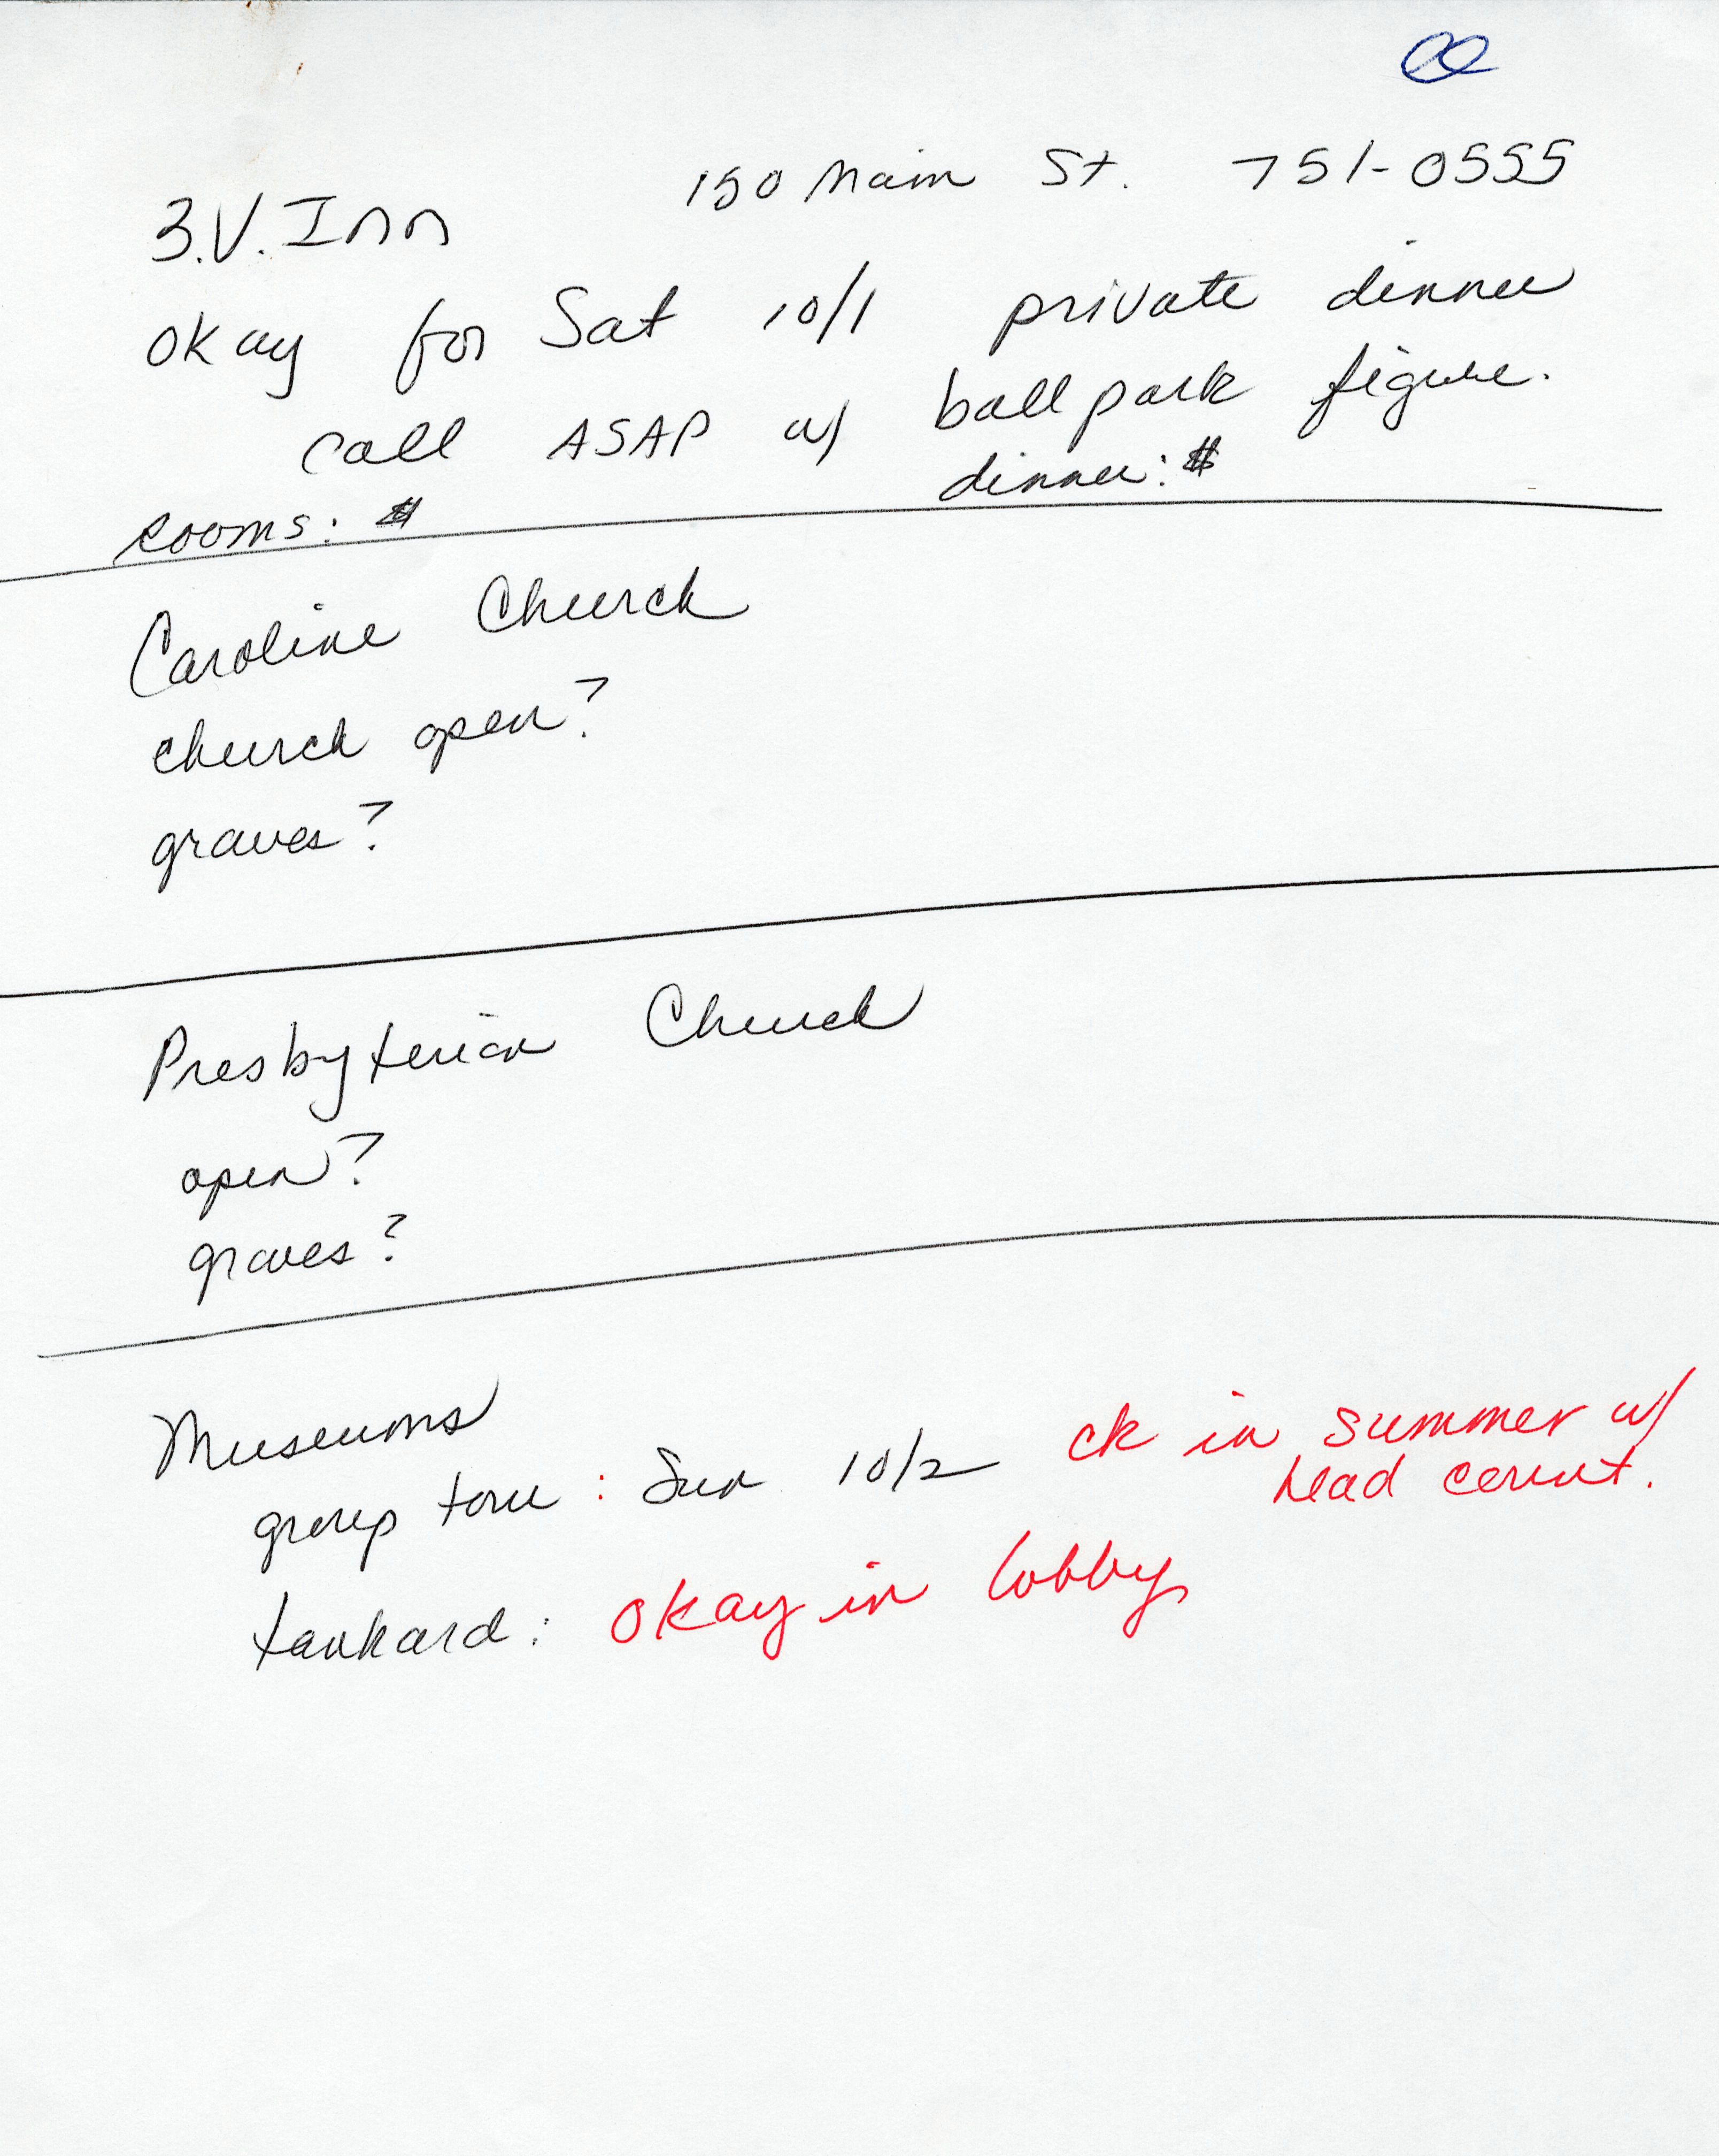 3.V. Inn 150 Main St. 751-0555
okay for Sat 10/1 private dinner
call ASAP w/ ballpark figure.
rooms: # dinner: #
Caroline Church
church open?
graves?
Presbyterian Church
open?
graves?
Museums
group tour : Sun 10/2 ck in summer w/
head count.
tankard: okay in lobby